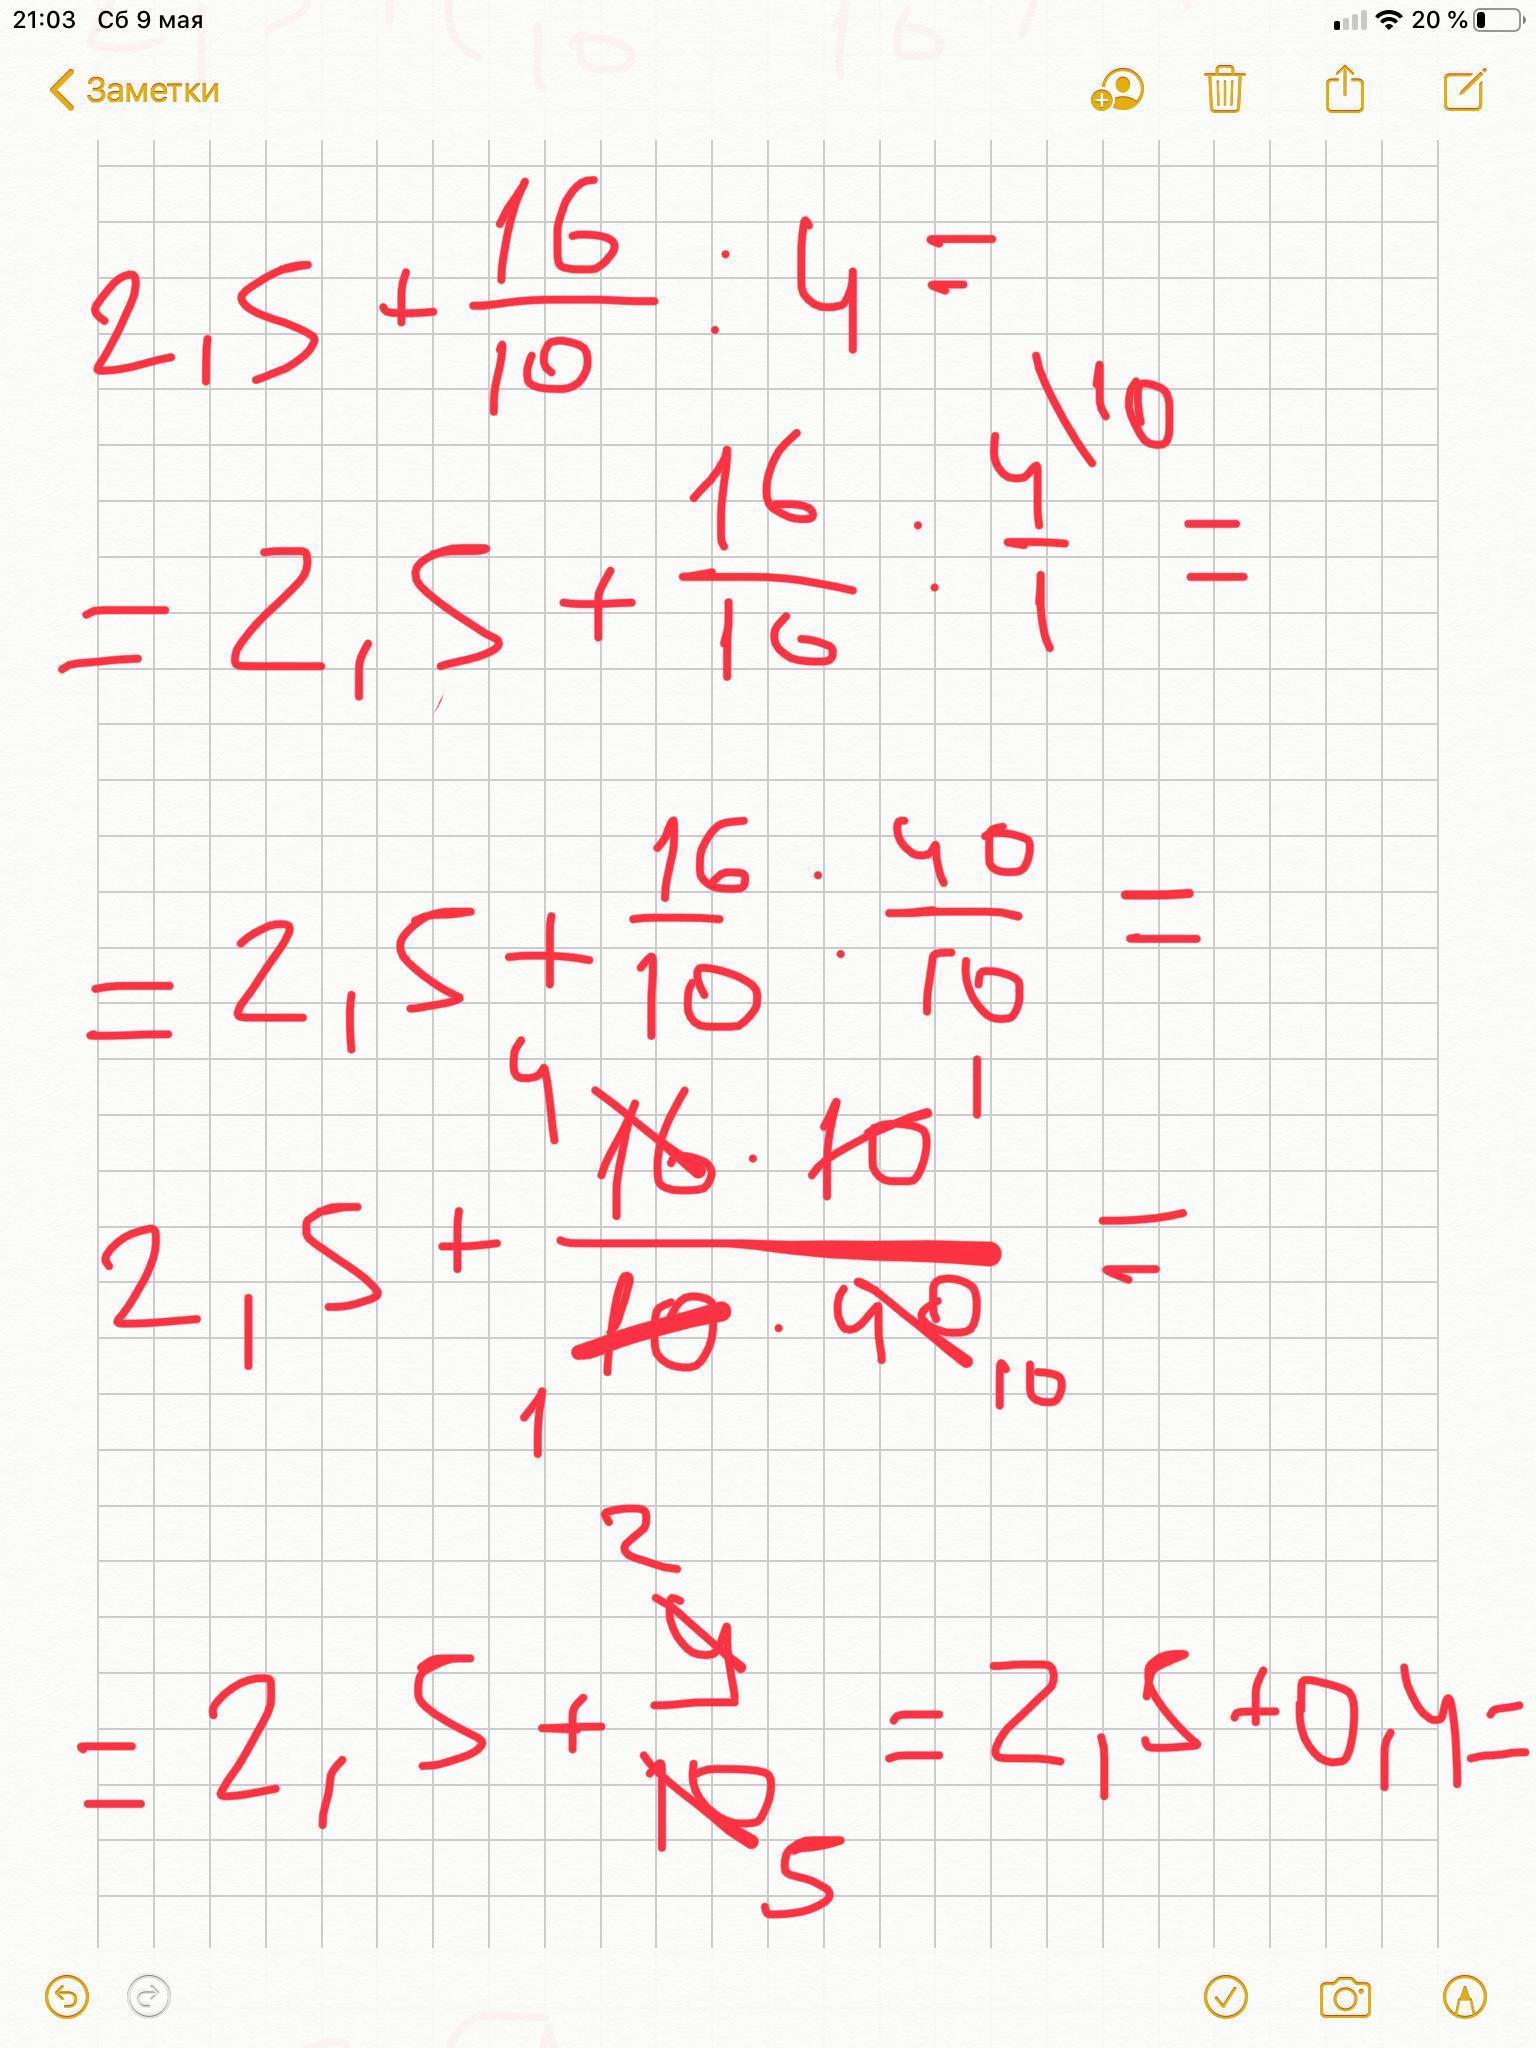 21:03 Сб 9 мая 20 %
Заметки
2,5 + 16/10 : 4 =
= 2,5 + 16/10 : 4/1 \10 =
= 2,5 + 16/10 : 40/10 =
4 16 · 10 1
2,5 + ―――― =
1 10 · 40 10
2
= 2,5 + 4/10 = 2,5 + 0,4 =
5